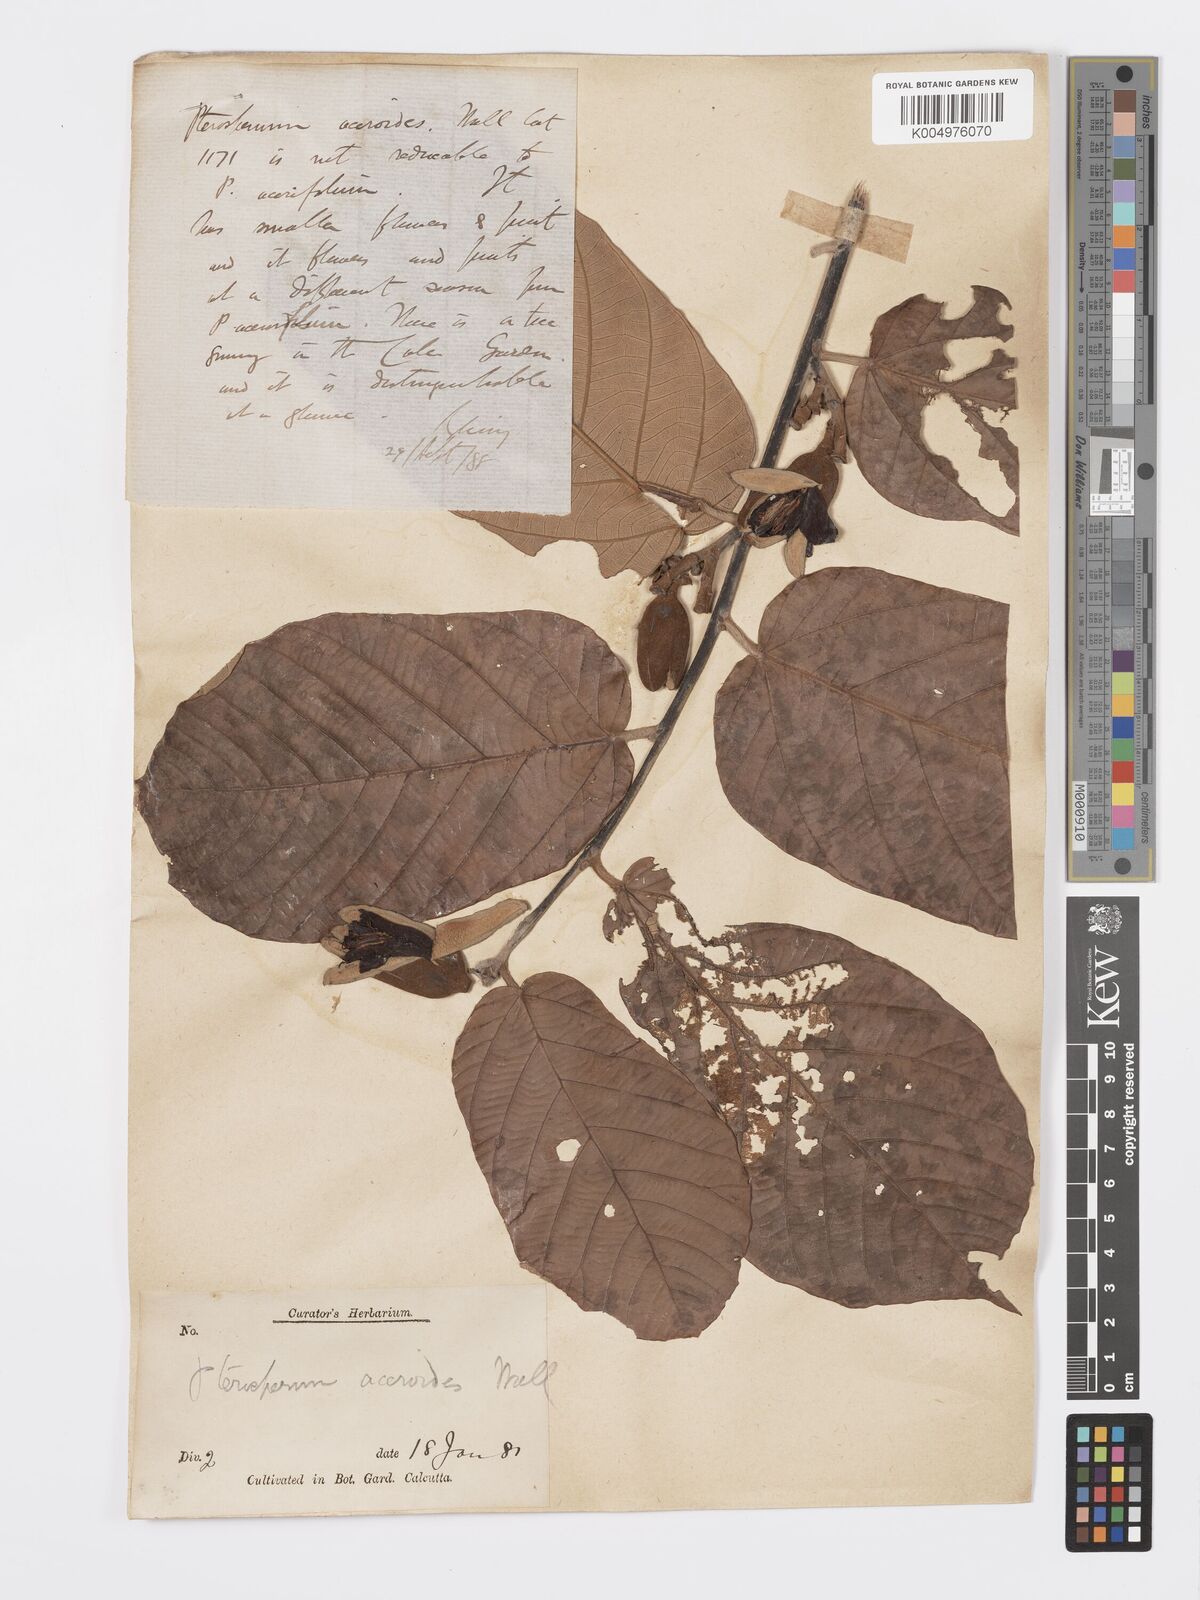 ROYAL BOTANIC GARDENS KEW
K004976070
Pterospermum aceroides. Wall Cat
1171 is not reducable to
P. acerifolium. It
has smaller flowers & fruit
and it flowers and fruits
at a different season from
P acerifolium. There is a tree
growing in the Calc Garden
and it is distinguishable
at a glance.
GKing
29/
/88
Curator's Herbarium.
No.
Pterosperm aceroides Wall
Div. 2 date 18 Jan 81
Cultivated in Bot. Gard. Calcutta.
Density
Don Williams
M000910
centimeters
Royal Botanic Gardens
Kew
copyright reserved
0 1 2 3 4 5 6 7 8 9 10
cm